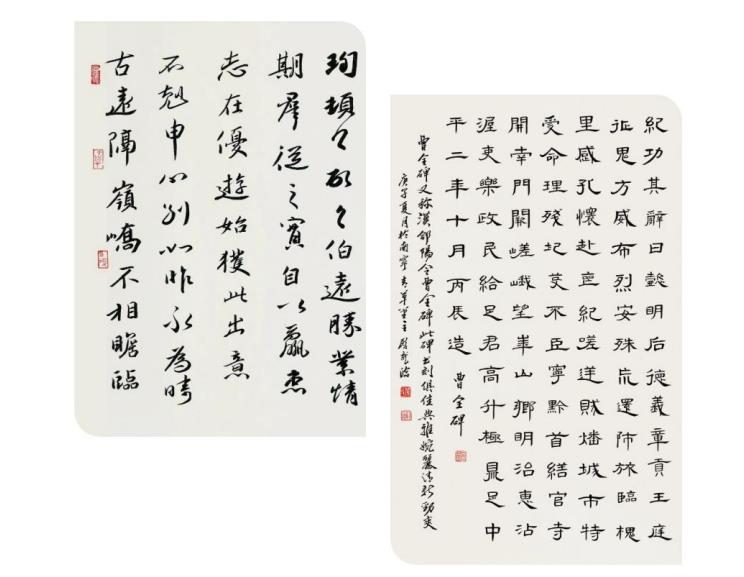 珣頓々首々伯遠勝業情
期羣從之寶自以羸患
志在優遊始獲此出意
不剋申分別如昨永為疇
古遠隔嶺嶠不相瞻臨
紀功其辭曰懿明后德義章貢王庭
征鬼方威布烈安殊荒還師旅臨槐
里感孔懷赴喪紀嗟逆賊燔城市特
受命理殘圮芟不臣寧黔首繕官寺
開南門闕嵯峨望華山鄉明治惠沾
渥吏樂政民給足君高升極鼎足中
平二年十月丙辰造
曹全碑
曹全碑又称漢郃陽令曹全碑此碑書刻俱佳典雅婉麗清新勁爽
庚子夏月於南寧青草堂主